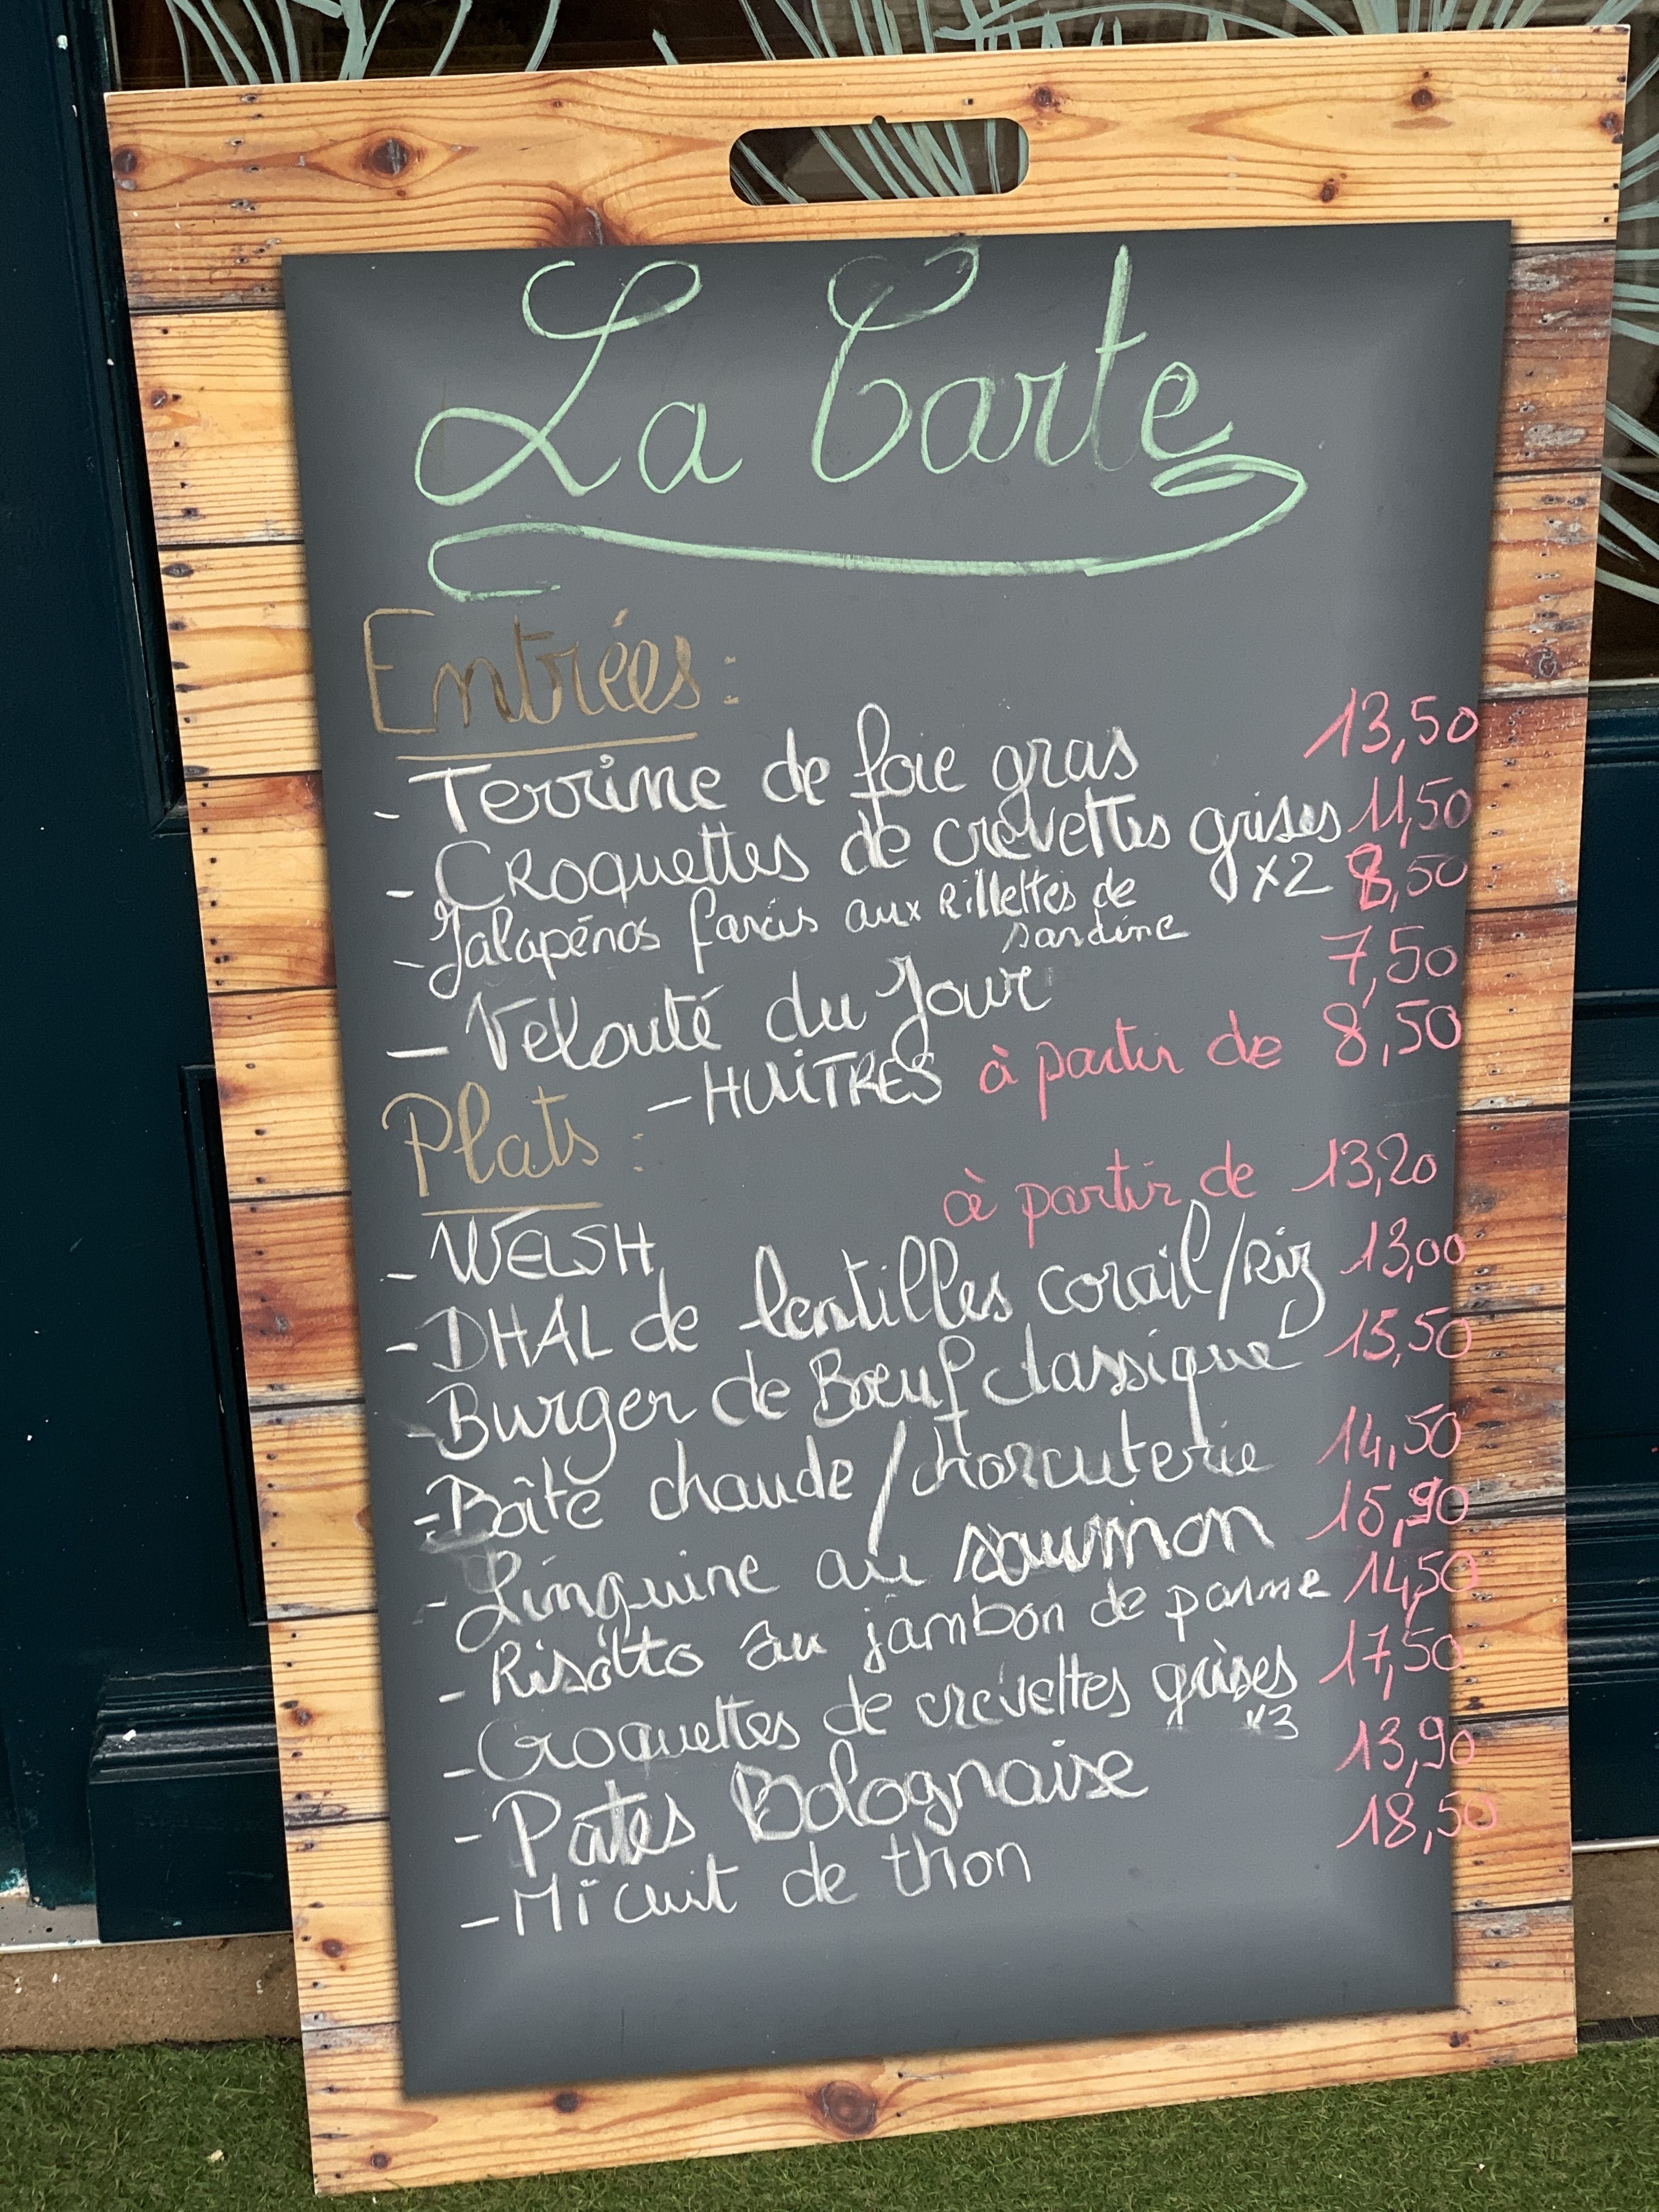 La Carte
Entrées :
- Terrine de foie gras 13,50
- Croquettes de crevettes grises 11,50
x2 8,50
- Jalapénos farcis aux Rillettes de
sardine
- Velouté du Jour 7,50
- HUITRES à partir de 8,50
Plats :
à partir de 13,20
- WELSH
- DHAL de lentilles corail/Riz 13,00
- Burger de Bœuf classique 15,50
- Boîte chaude/charcuterie 14,50
- Linguine au saumon 15,90
- Risotto au jambon de parme 14,50
- Croquettes de crevettes grises 17,50
x3
- Pates Bolognaise 13,90
- Mi cuit de thon 18,50